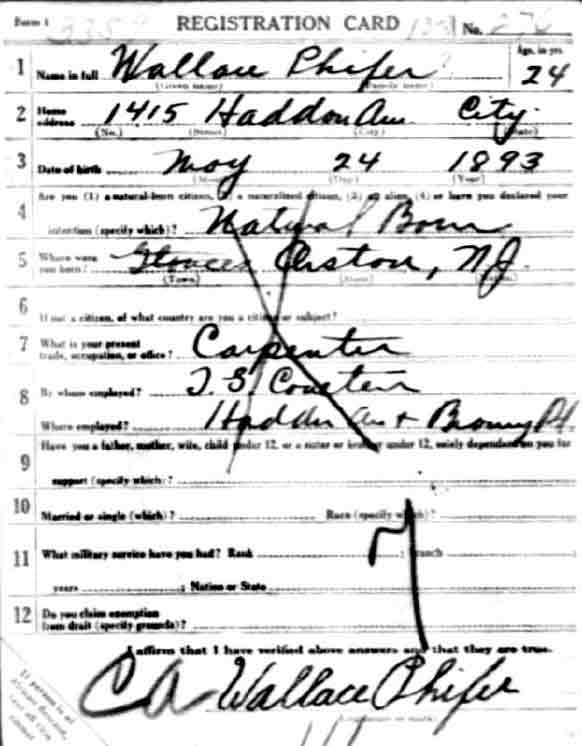 Form 1 REGISTRATION CARD No. 276
Age, in yrs.
1 Name in full Wallace Phifer 24
(Given name) (Family name)
2 Home address 1415 Haddon Ave City
(No.) (Street) (City) (State)
3 Date of birth May 24 1893
(Month) (Day) (Year)
Are you (1) a natural-born citizen, (2) a naturalized citizen, (3) an alien, (4) or have you declared your
4 intention (specify which)? Natural Born
5 Where were you born? NJ
(Town) (State)
6 If not a citizen, of what country are you a citizen or subject?
7 What is your present trade, occupation, or office? Carpenter
8 By whom employed?
Where employed? Haddon Ave +
9 Have you a father, mother, wife, child under 12, or a sister or brother under 12, solely dependent on you for
support (specify which)?
10 Married or single (which)? Race (specify which)?
11 What military service have you had? Rank ; branch
years ; Nation or State
12 Do you claim exemption from draft (specify grounds)?
I affirm that I have verified above answers and that they are true.
CA Wallace Phifer
If person is of African descent,